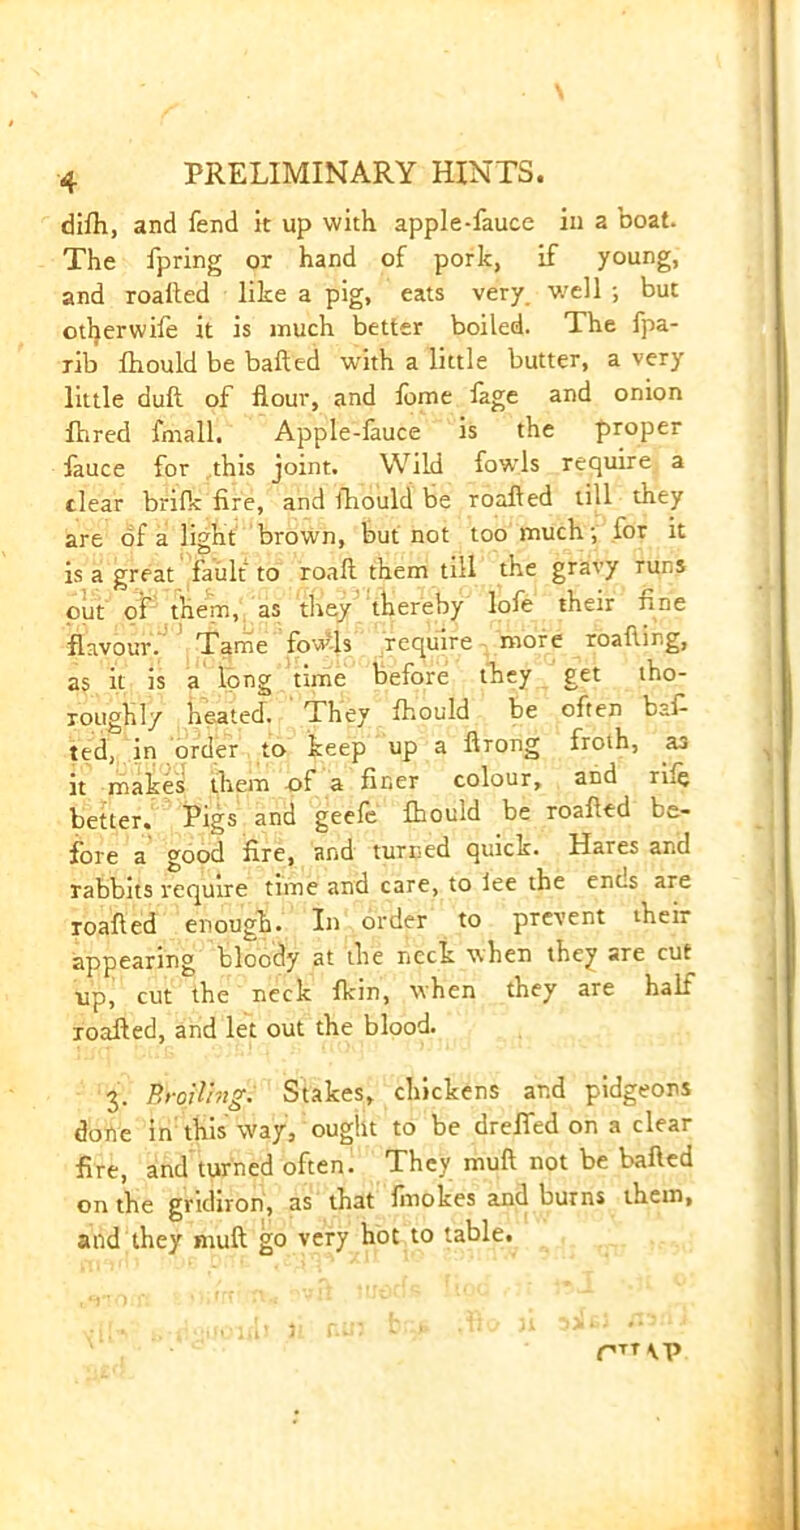 4 PRELIMINARY HINTS.
diſh, and ſend it up with apple-ſauce in a boat.
The ſpring or hand of pork, if young,
and roaſted like a pig, eats very well; but
otherwiſe it is much better boiled. The ſpa-
rib ſhould be baſted with a little butter, a very
little duſt of flour, and ſome ſage and onion
ſhred ſmall. Apple-ſauce is the proper
ſauce for this joint. Wild fowls require a
clear briſk fire, and ſhould be roaſted till they
are of a light brown, but not too much; for it
is a great fault to roaſt them till the gravy runs
out of them, as they thereby loſe their fine
flavour. Tame fowls require more roaſting,
as it is a long time before they get tho-
roughly heated. They ſhould be often baſ-
ted, in order to keep up a ſtrong froth, as
it makes them of a finer colour, and riſe
better. Pigs and geeſe ſhould be roaſted be-
fore a good fire, and turned quick. Hares and
rabbits require time and care, to ſee the ends are
roaſted enough. In order to prevent their
appearing bloody at the neck when they are cut
up, cut the neck ſkin, when they are half
roaſted, and let out the blood.
3. Broiling. Stakes, chickens and pidgeons
done in this way, ought to be dreſſed on a clear
fire, and turned often. They muſt not be baſted
on the gridiron, as that ſmokes and burns them,
and they muſt go very hot to table.